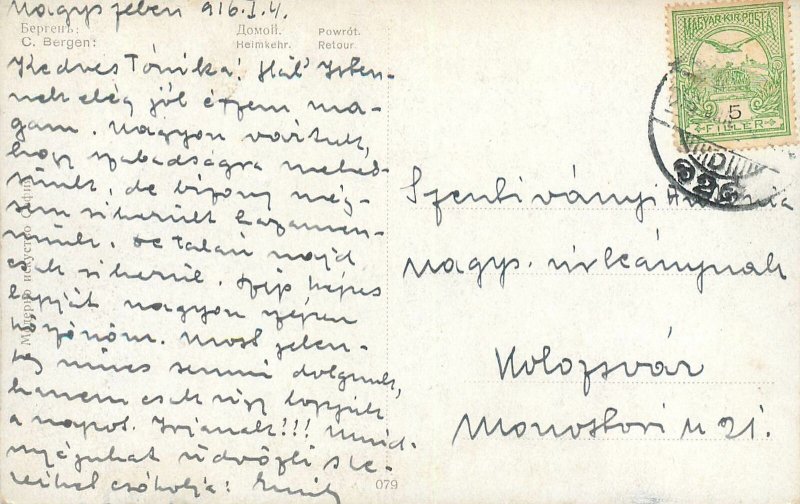 Nagyszeben 916.I.4.
Бергенъ: Домой. Powrót.
C. Bergen: Heimkehr. Retour.
Kedves Tónika! Hál' Isten-
nek elég jól érzem ma-
gam. Nagyon vártuk,
hogy szabadságra mehes-
sünk, de bizony még-
sem sikerült hazamen-
nünk. De talán majd
csak sikerül. Szép képes
lapját nagyon szépen
köszönöm. Most jelen-
leg nincs semmi dolgunk,
hanem csak úgy lopjuk
a napot. Irjanak!!! Mind-
nyájukat üdvözli sze-
retettel csókolja: Emil
Модерно искуство София
079
MAGYAR KIR. POSTA
5
FILLÉR
Szentiványi
nagys. úrleánynak
Kolozsvár
Monostori u 21.